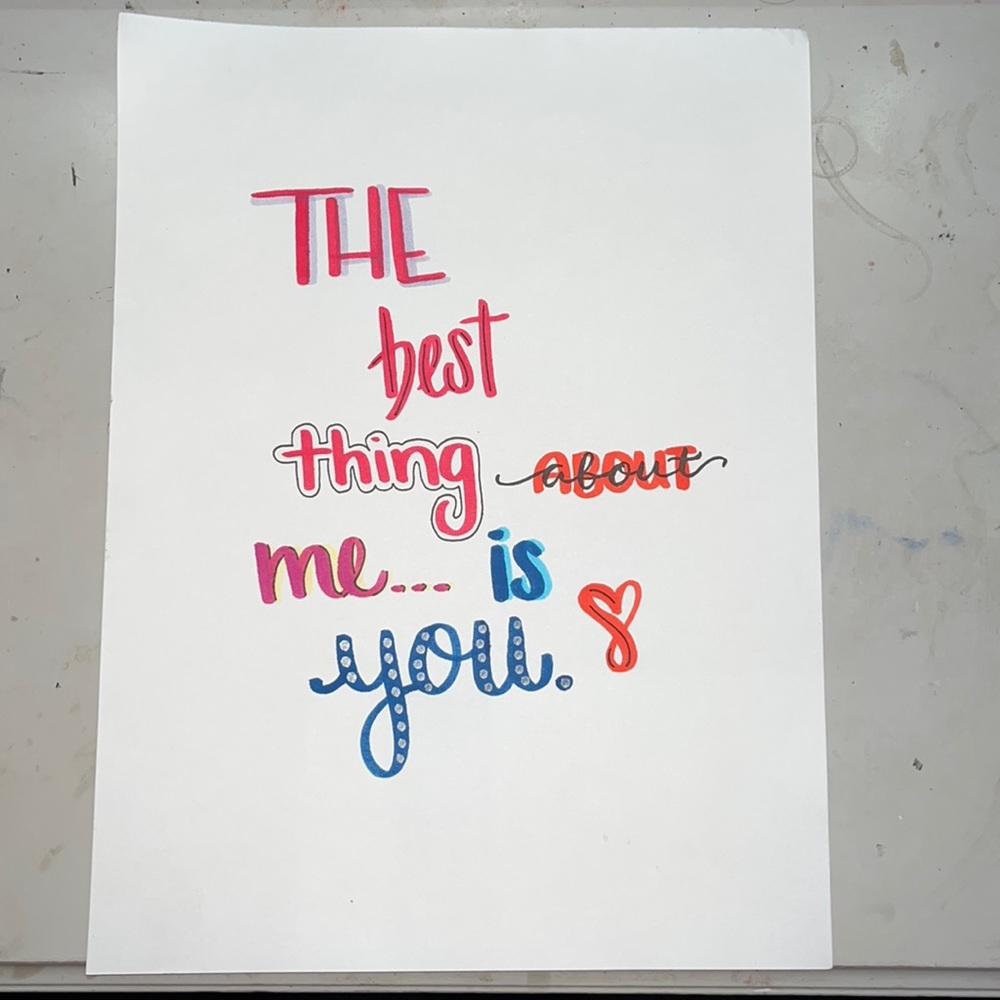 THE
best
thing about
me... is
you.